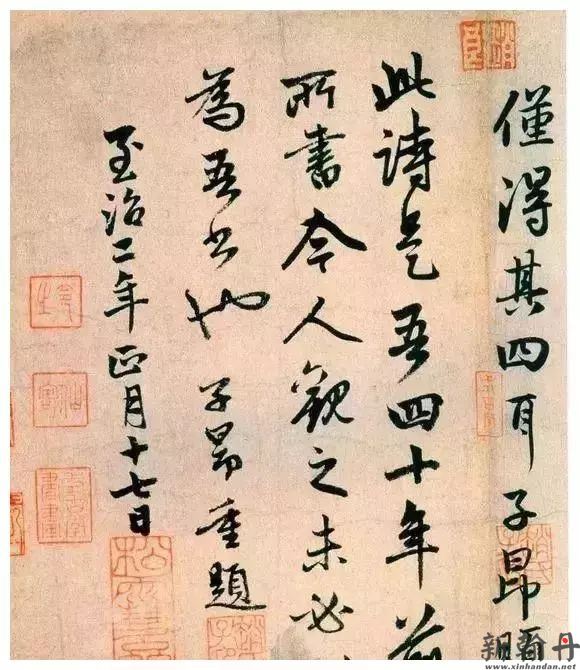 僅得其四耳子昂
此詩是吾四十年前
所書今人觀之未必
為吾書也 子昂重題
至治二年正月十七日
松雪
新翰丹
www.xinhandan.net